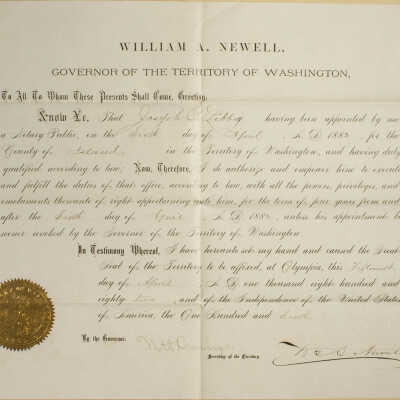 WILLIAM A. NEWELL,
GOVERNOR OF THE TERRITORY OF WASHINGTON,
To All To Whom These Presents Shall Come, Greeting:
Know Ye, That Joseph Libby having been appointed by me
a Notary Public, on the Sixth day of April A.D. 1882 for the
County of Island in the Territory of Washington, and having duly
qualified according to law; Now, Therefore, I do authorize and empower him to execute
and fulfill the duties of that office, according to law, with all the powers, privileges, and
emoluments thereunto of right appertaining unto him, for the term of four years from and
after the Sixth day of April A.D. 1882, unless his appointment be
sooner revoked by the Governor of the Territory of Washington
In Testimony Whereof, I have hereunto set my hand and caused the Great
Seal of the Territory to be affixed, at Olympia, this
day of April A.D. one thousand eight hundred and
eighty two, and of the Independence of the United States
of America, the One Hundred and Sixth
By the Governor:
Secretary of the Territory.
Newell